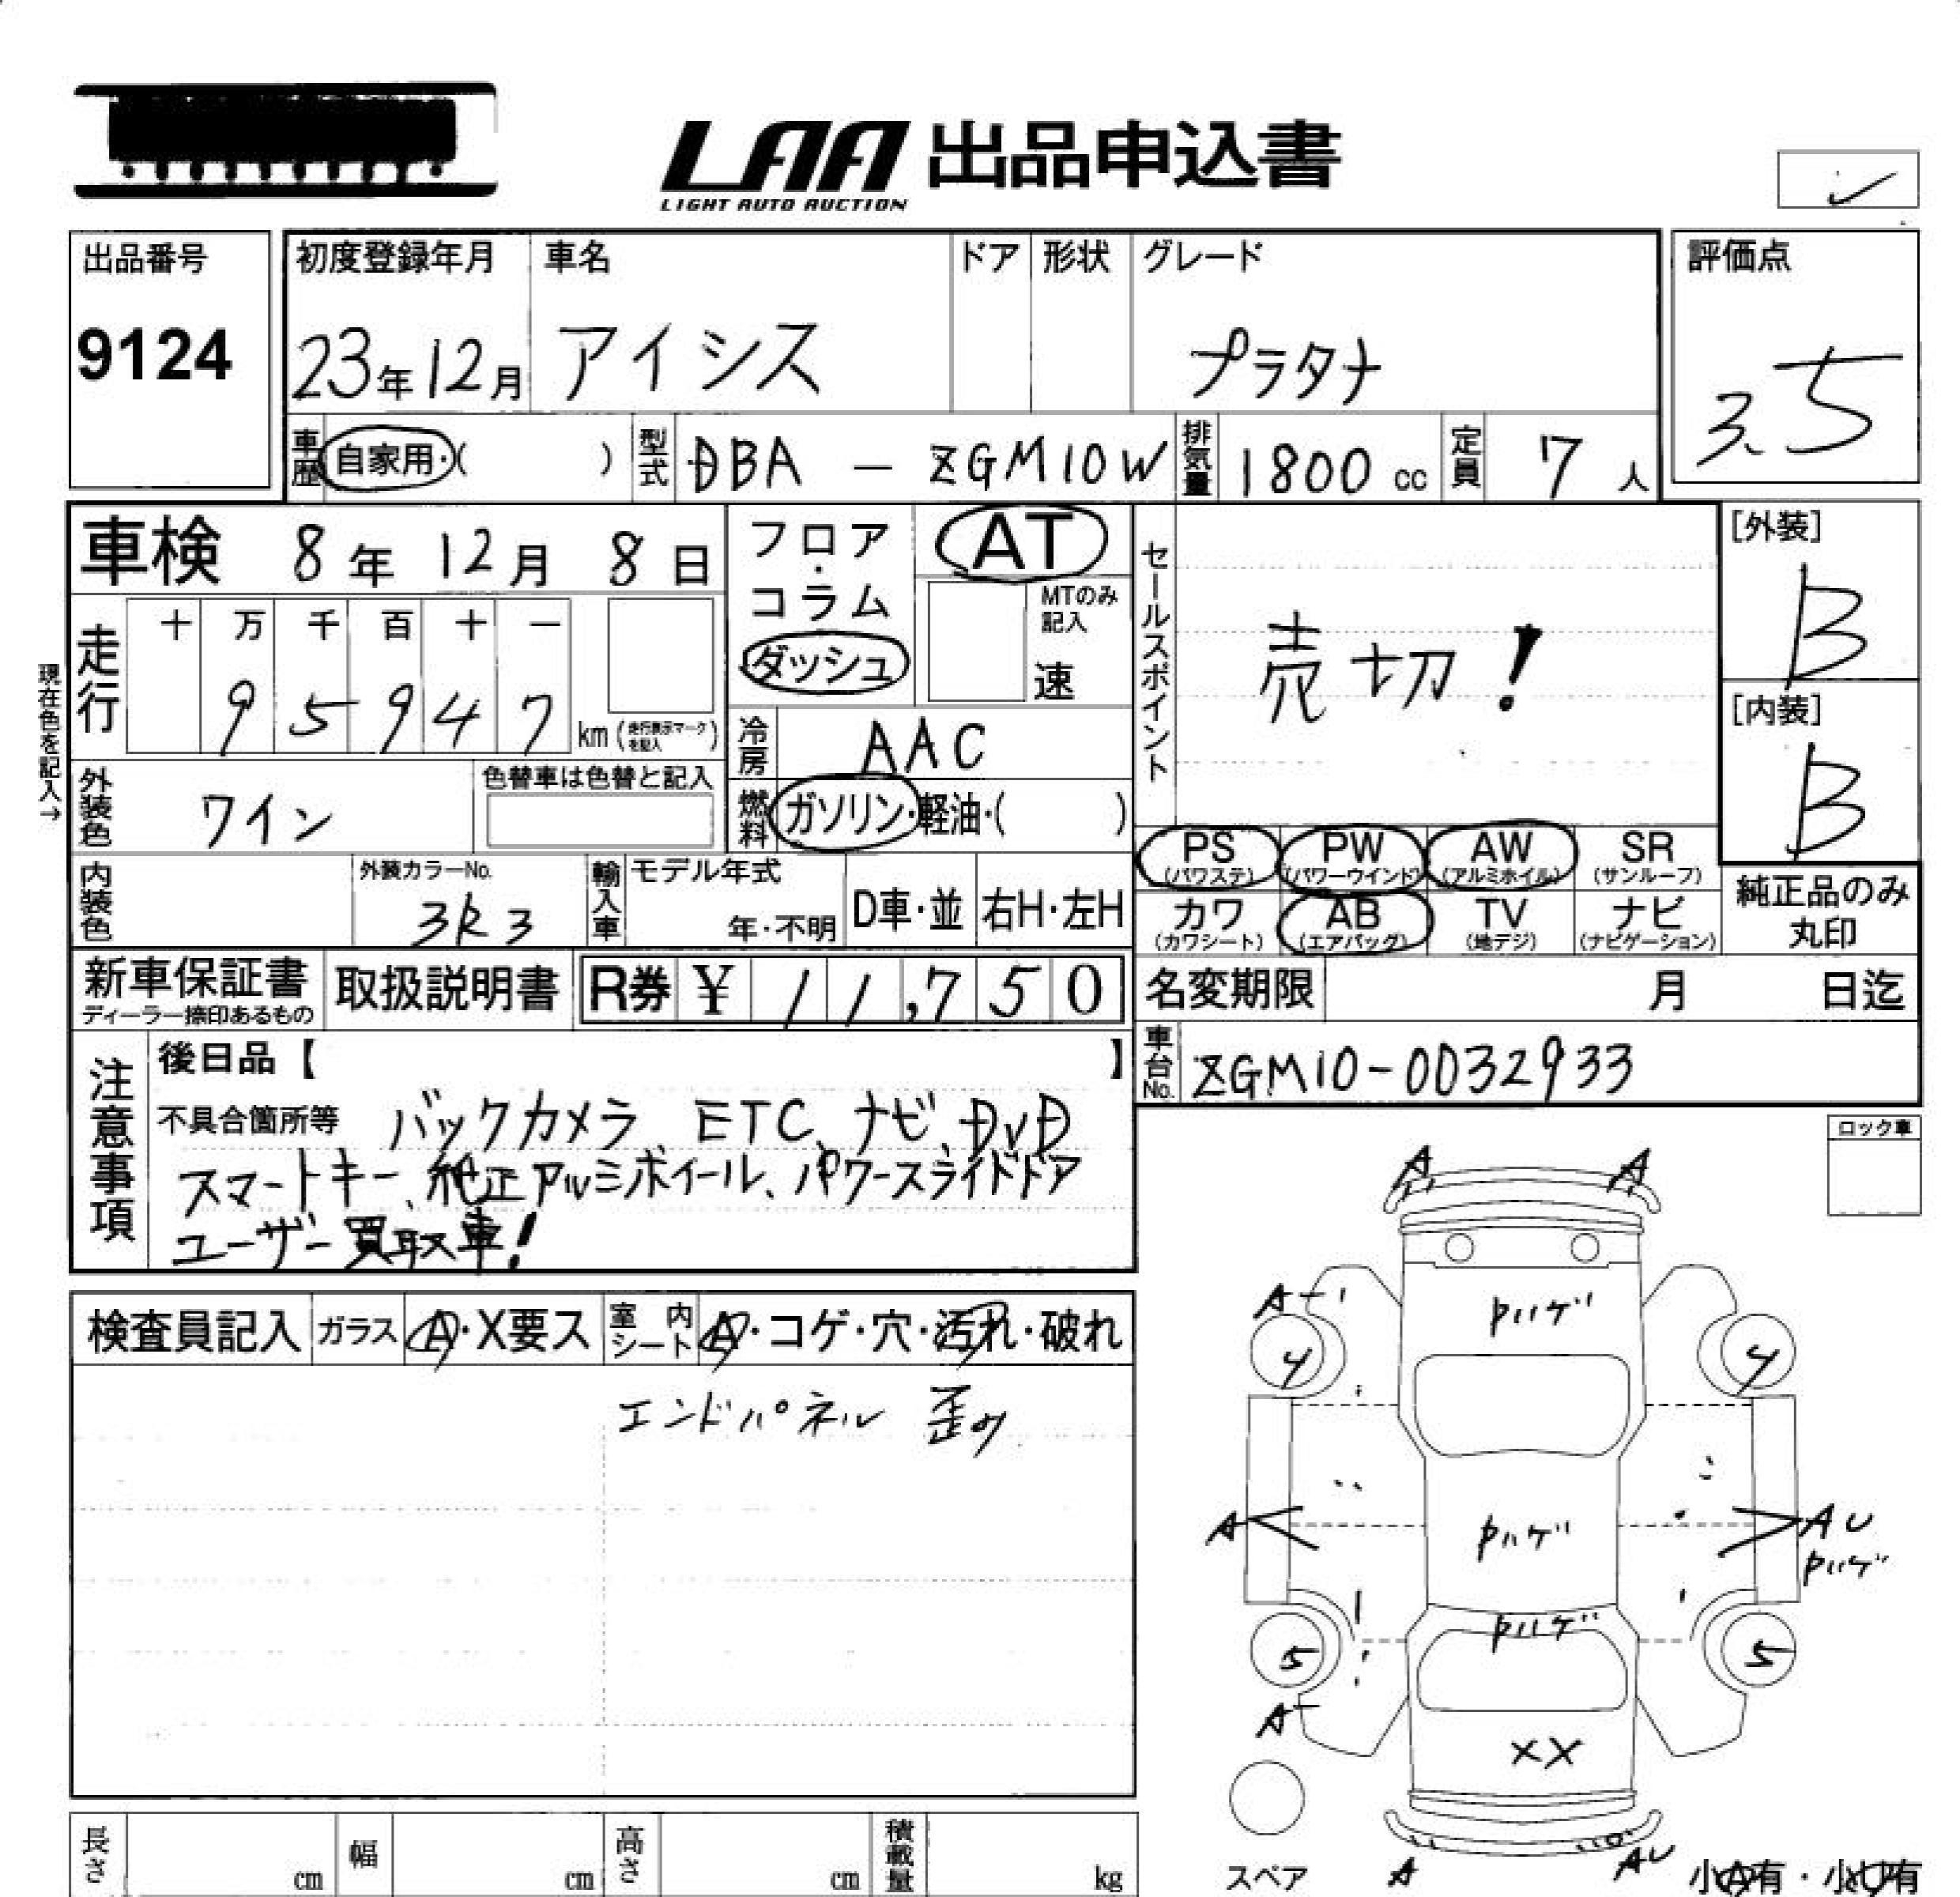 LAA 出品申込書
LIGHT AUTO AUCTION
出品番号
9124
初度登録年月
23年12月
車名
アイシス
ドア
形状
グレード
プラタナ
評価点
3.5
車歴
自家用・( )
型式
DBA - ZGM10W
排気量
1800 cc
定員
7 人
車検 8年 12月 8日
現在色を記入→
走行
十 万 千 百 十 一
9 5 9 4 7
km(走行表示マークを記入)
フロア・コラム
ダッシュ
AT
MTのみ記入
速
冷房
AAC
燃料
ガソリン・軽油・( )
セールスポイント
売切!
[外装]
B
[内装]
B
外装色
ワイン
色替車は色替と記入
内装色
外装カラーNo.
3R3
輸入車
モデル年式
年・不明
D車・並
右H・左H
PS
(パワステ)
PW
(パワーウインド)
AW
(アルミホイル)
SR
(サンルーフ)
カワ
(カワシート)
AB
(エアバッグ)
TV
(地デジ)
ナビ
(ナビゲーション)
純正品のみ
丸印
新車保証書
ディーラー捺印あるもの
取扱説明書
R券 ¥ 11,750
名変期限 月 日迄
車台No.
ZGM10-0032933
注意事項
後日品【 】
不具合箇所等 バックカメラ、ETC、ナビ、DVD
スマートキー、純正アルミホイール、パワースライドドア
ユーザー買取車!
ロック車
検査員記入
ガラス
A・X要ス
室内シート
A・コゲ・穴・汚れ・破れ
エンドパネル 歪み
A
A
A-1
Pハゲ
4
4
A
Pハゲ
AU
Pハゲ
Pハゲ
5
5
A-
XX
スペア
A
AU
小A有・小U有
長さ cm
幅 cm
高さ cm
積載量 kg